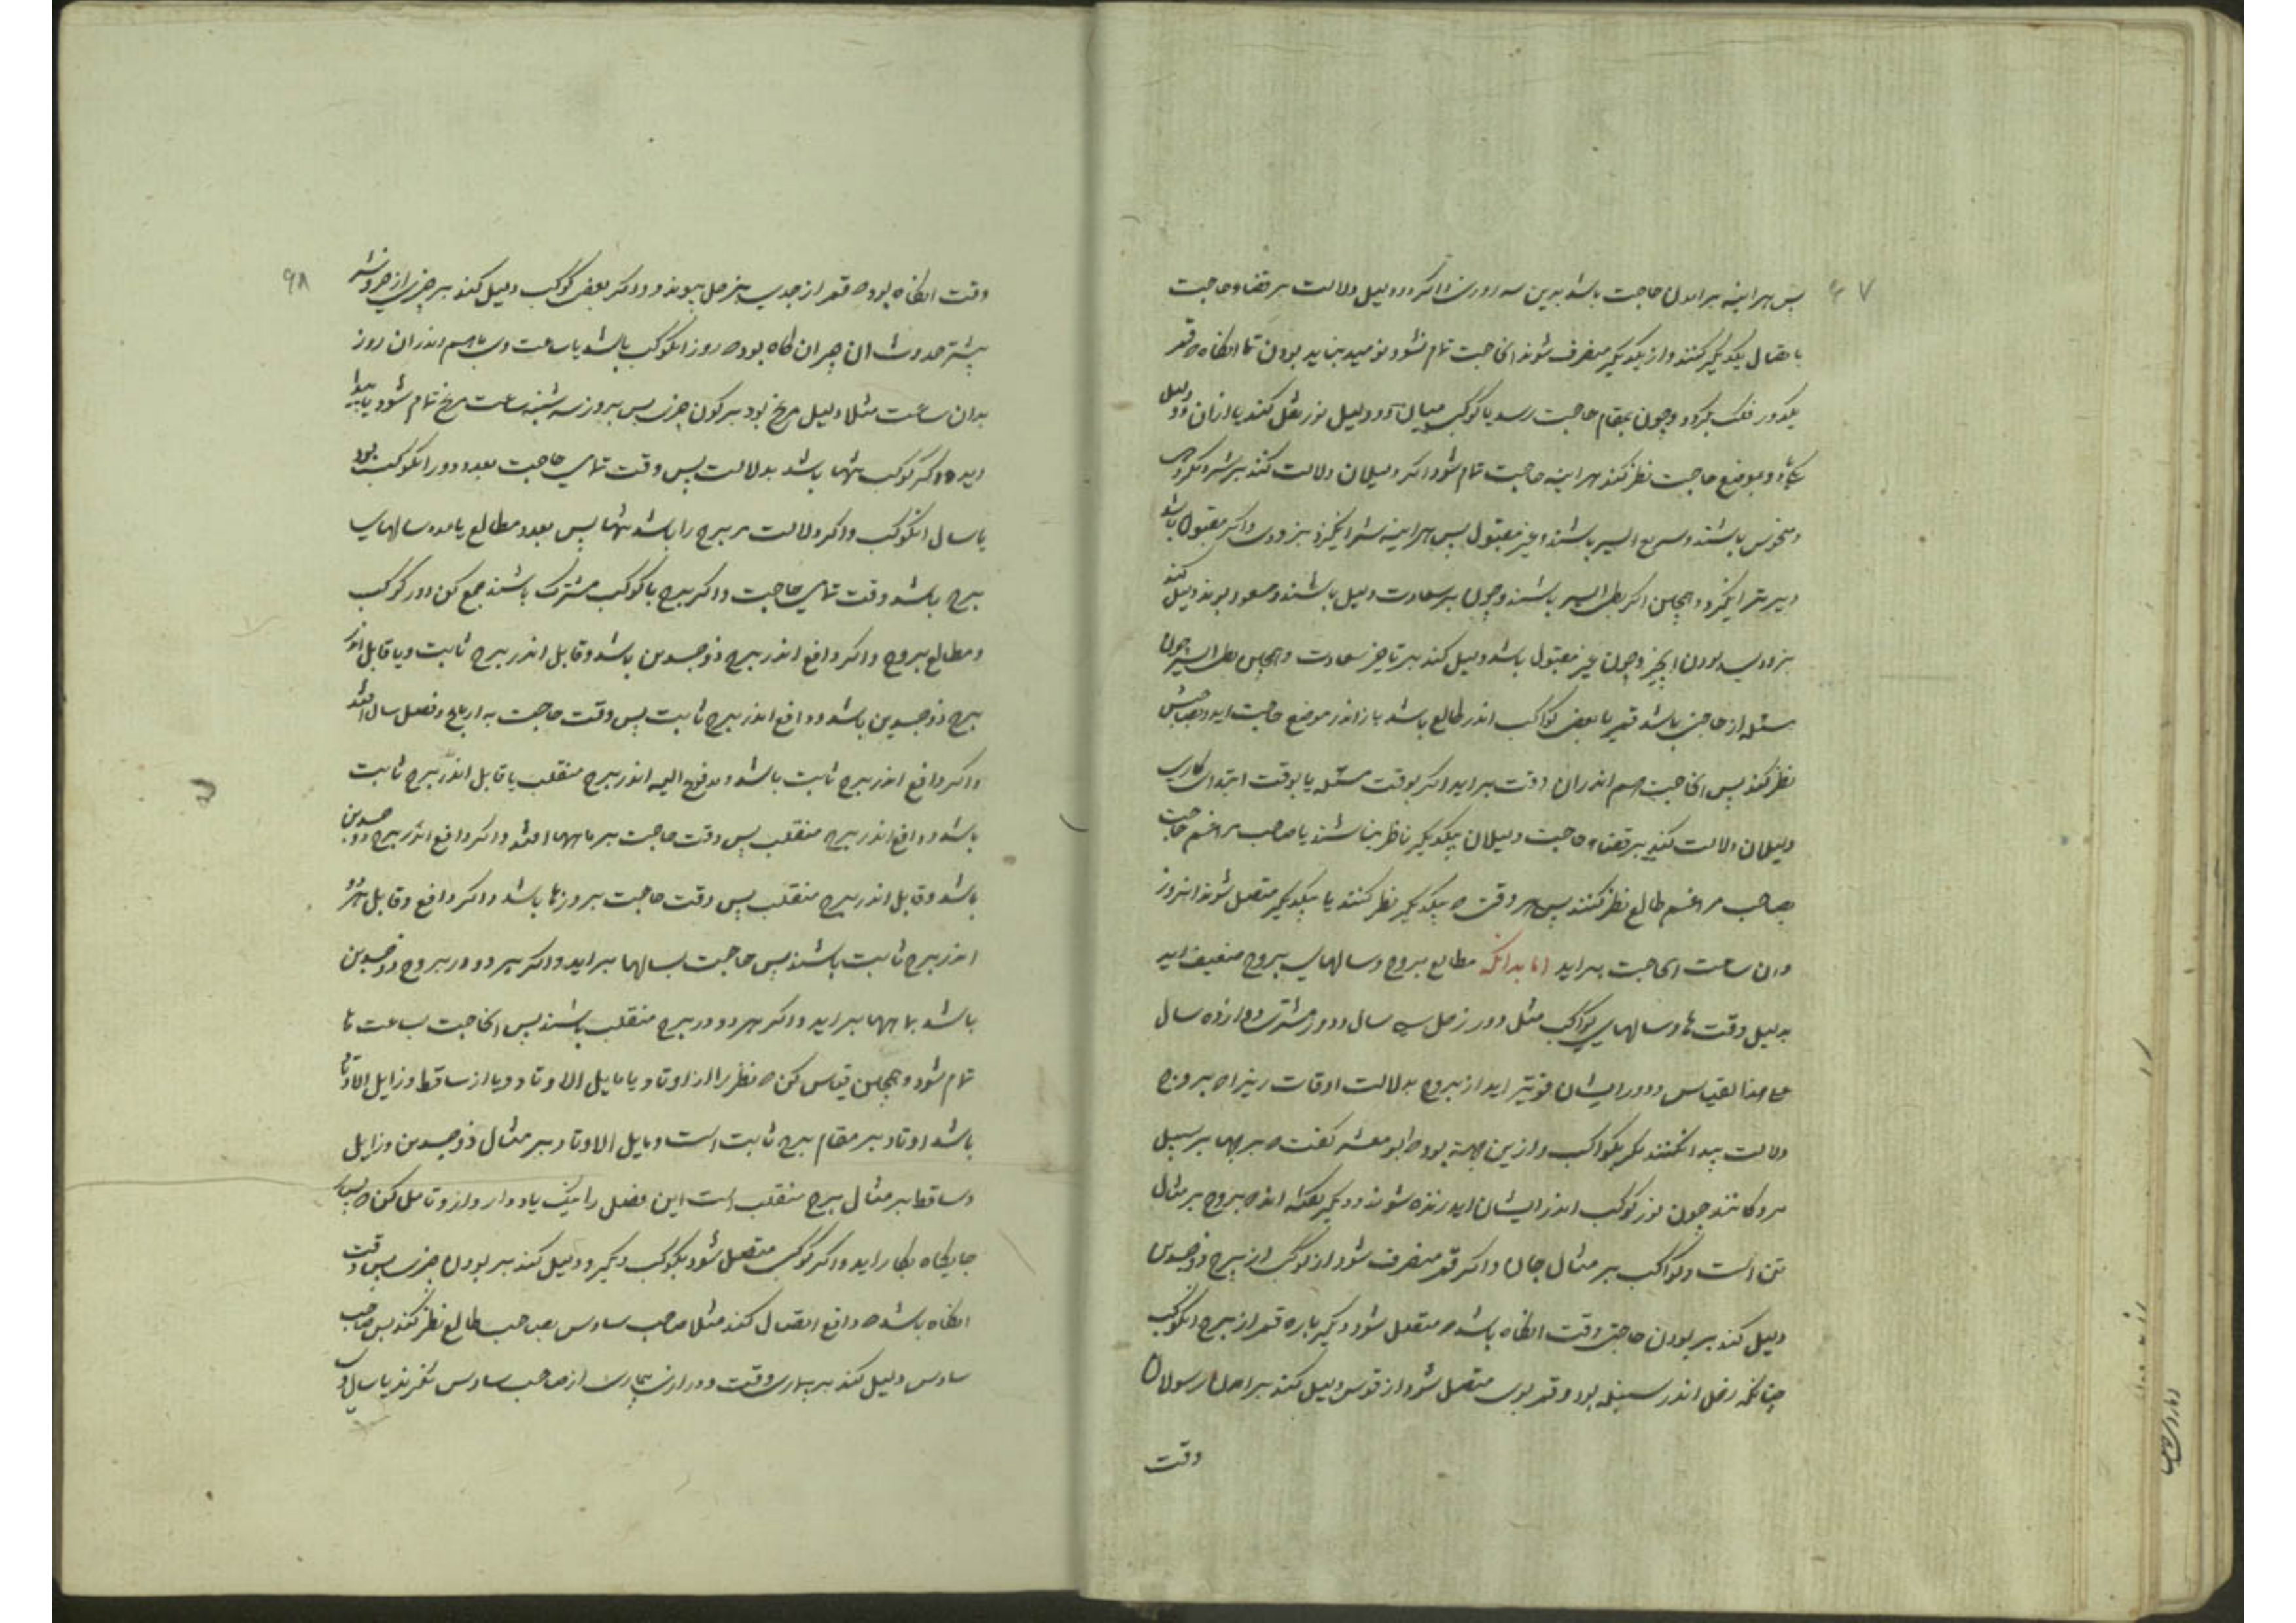 ۹۷
پس هراینه برامدن حاجت باشد بدین سه روزن و اکر دو دلیل دلالت بر قضاء حاجت
باتصال یکدیکر کنند و از یکدیکر منصرف شوند ان حاجت تمام نشود نومید نباید بودن تا انکاه که قمر
یکدور فلک بکردد و چون بمقام حاجت رسد یا کوکبی میان دو دلیل نور نقل کند یا ازان دو دلیل
و بموضع حاجت نظر کند هراینه حاجت تمام شود اکر دلیلان دلالت کنند بر شر و مکروهی
و منحوس باشند و سریع السیر باشند و غیر مقبول پس هراینه شر انکیزد بزودی و اکر مقبول باشد
دیرتر انکیزد و همچنین اکر بطی السیر باشند و چون بر سعادت دلیل باشند و مسعود بوند دلیل کند
بزودی بودن ان چیز و چون غیر مقبول باشد دلیل کند بر تاخیر سعادت و همچنین بطی السیر چون
مسئله از حاجتی باشد قمر یا بعضی کواکب اندر طالع باشد باز اندر موضع حاجت اید و بصاحبش
نظر کند پس ان حاجت هم اندران وقت براید و اکر بوقت مسئله یا بوقت ابتدای کاری
دلیلان دلالت کنند بر قضاء حاجت دلیلان بیکدیکر ناظر نباشند یا صاحب مراغم حاجت
بصاحب مراغم طالع نظر کنند پس هر وقت که بیکدیکر نظر کنند یا بیکدیکر متصل شوند انروز
وان ساعت ان حاجت براید اما بدانکه مطالع بروج و سالهای بروج ضعیف اید
بدلیل وقت ها و سالهای کواکب مثل دور زحل سی سال و دور مشتری دوازده سال
علی هذا القیاس و دور ایشان قویتر اید از بروج بدلالت اوقات زیرا که بروج
دلالت پیدا نکنند مکر بکواکب و ازین جهت بود که ابومعشر کفت که برجها بر سبیل
مردکانند چون نور کوکب اندر ایشان اید زنده شوند و دیکر کفته اند که بروج بر مثال
تن است و کواکب بر مثال جان و اکر قمر منصرف شود از کوکبی از برج ذوجسدین
دلیل کند بر بودن حاجتی وقت انکاه باشد که متصل شود دیکر باره قمر از برج دانکوکب
چنانکه زحل اندر سنبله بود و قمر بوی متصل شود از قوس دلیل کند بر امدن رسولان
وقت
۹۸
وقت انکاه بود که قمر از جدی بزحل پیوندد و اکر بعضی کوکب دلیل کند بر چیزی از خیر و شر
بیشتر حدوث ان چیز ان کاه بود که روز انکوکب باشد یا ساعت وی یا هم اندران روز
بدان ساعت مثلا دلیل مریخ بود بر کون چیزی پس بروز سه شنبه ساعت مریخ تمام شود یا پیدا
اید و اکر کوکب تنها باشد بدلالت پس وقت تمامی حاجت بعدد دور انکوکب بود
یا سال انکوکب و اکر دلالت مر برج را باشد تنها پس بعدد مطالع یا عدد سالهای
برج باشد وقت تمامی حاجت و اکر برج با کوکب مشترک باشند جمع کن دور کوکب
و مطالع بروج و اکر دافع اندر برج ذوجسدین باشد و قابل اندر برج ثابت و یا قابل اندر
برج ذوجسدین باشد و دافع اندر برج ثابت پس وقت حاجت به ارباع و فصل سال افتد
و اکر دافع اندر برج ثابت باشد و مدفوع الیه اندر برج منقلب یا قابل اندر برج ثابت
باشد و دافع اندر برج منقلب پس وقت حاجت بر ماهها افتد و اکر دافع اندر برج ذوجسدین
باشد و قابل اندر برج منقلب پس وقت حاجت بر روزها باشد و اکر دافع و قابل هردو
اندر برج ثابت باشند پس حاجت بسالها براید و اکر هر دو در بروج ذوجسدین
باشد بماهها براید و اکر هر دو در برج منقلب باشند پس ان حاجت بساعت ها
تمام شود و همچنین قیاس کن که نظر را از اوتاد یا مایل الاوتاد و یا از ساقط و زایل الاوتاد
باشد اوتاد بر مقام برج ثابت است و مایل الاوتاد بر مثال ذوجسدین و زایل
و ساقط بر مثال برج منقلب است این فصل را نیک یاد دار و اندرو تامل کن که بسیار
جایکاه بکار اید و اکر کوکبی متصل شود بکوکب دیکر و دلیل کند بر بودن چیزی پس وقت
انکاه باشد که دافع اتصال کند مثلا صاحب سادس بصاحب طالع نظر کند پس صاحب
سادس دلیل کند بر بیماری وقت و درازی بیماری از صاحب سادس نکرند یا سال وی